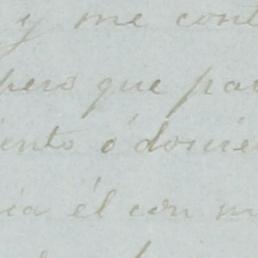 y me cont
pero que pa
ento ó
ia él con m